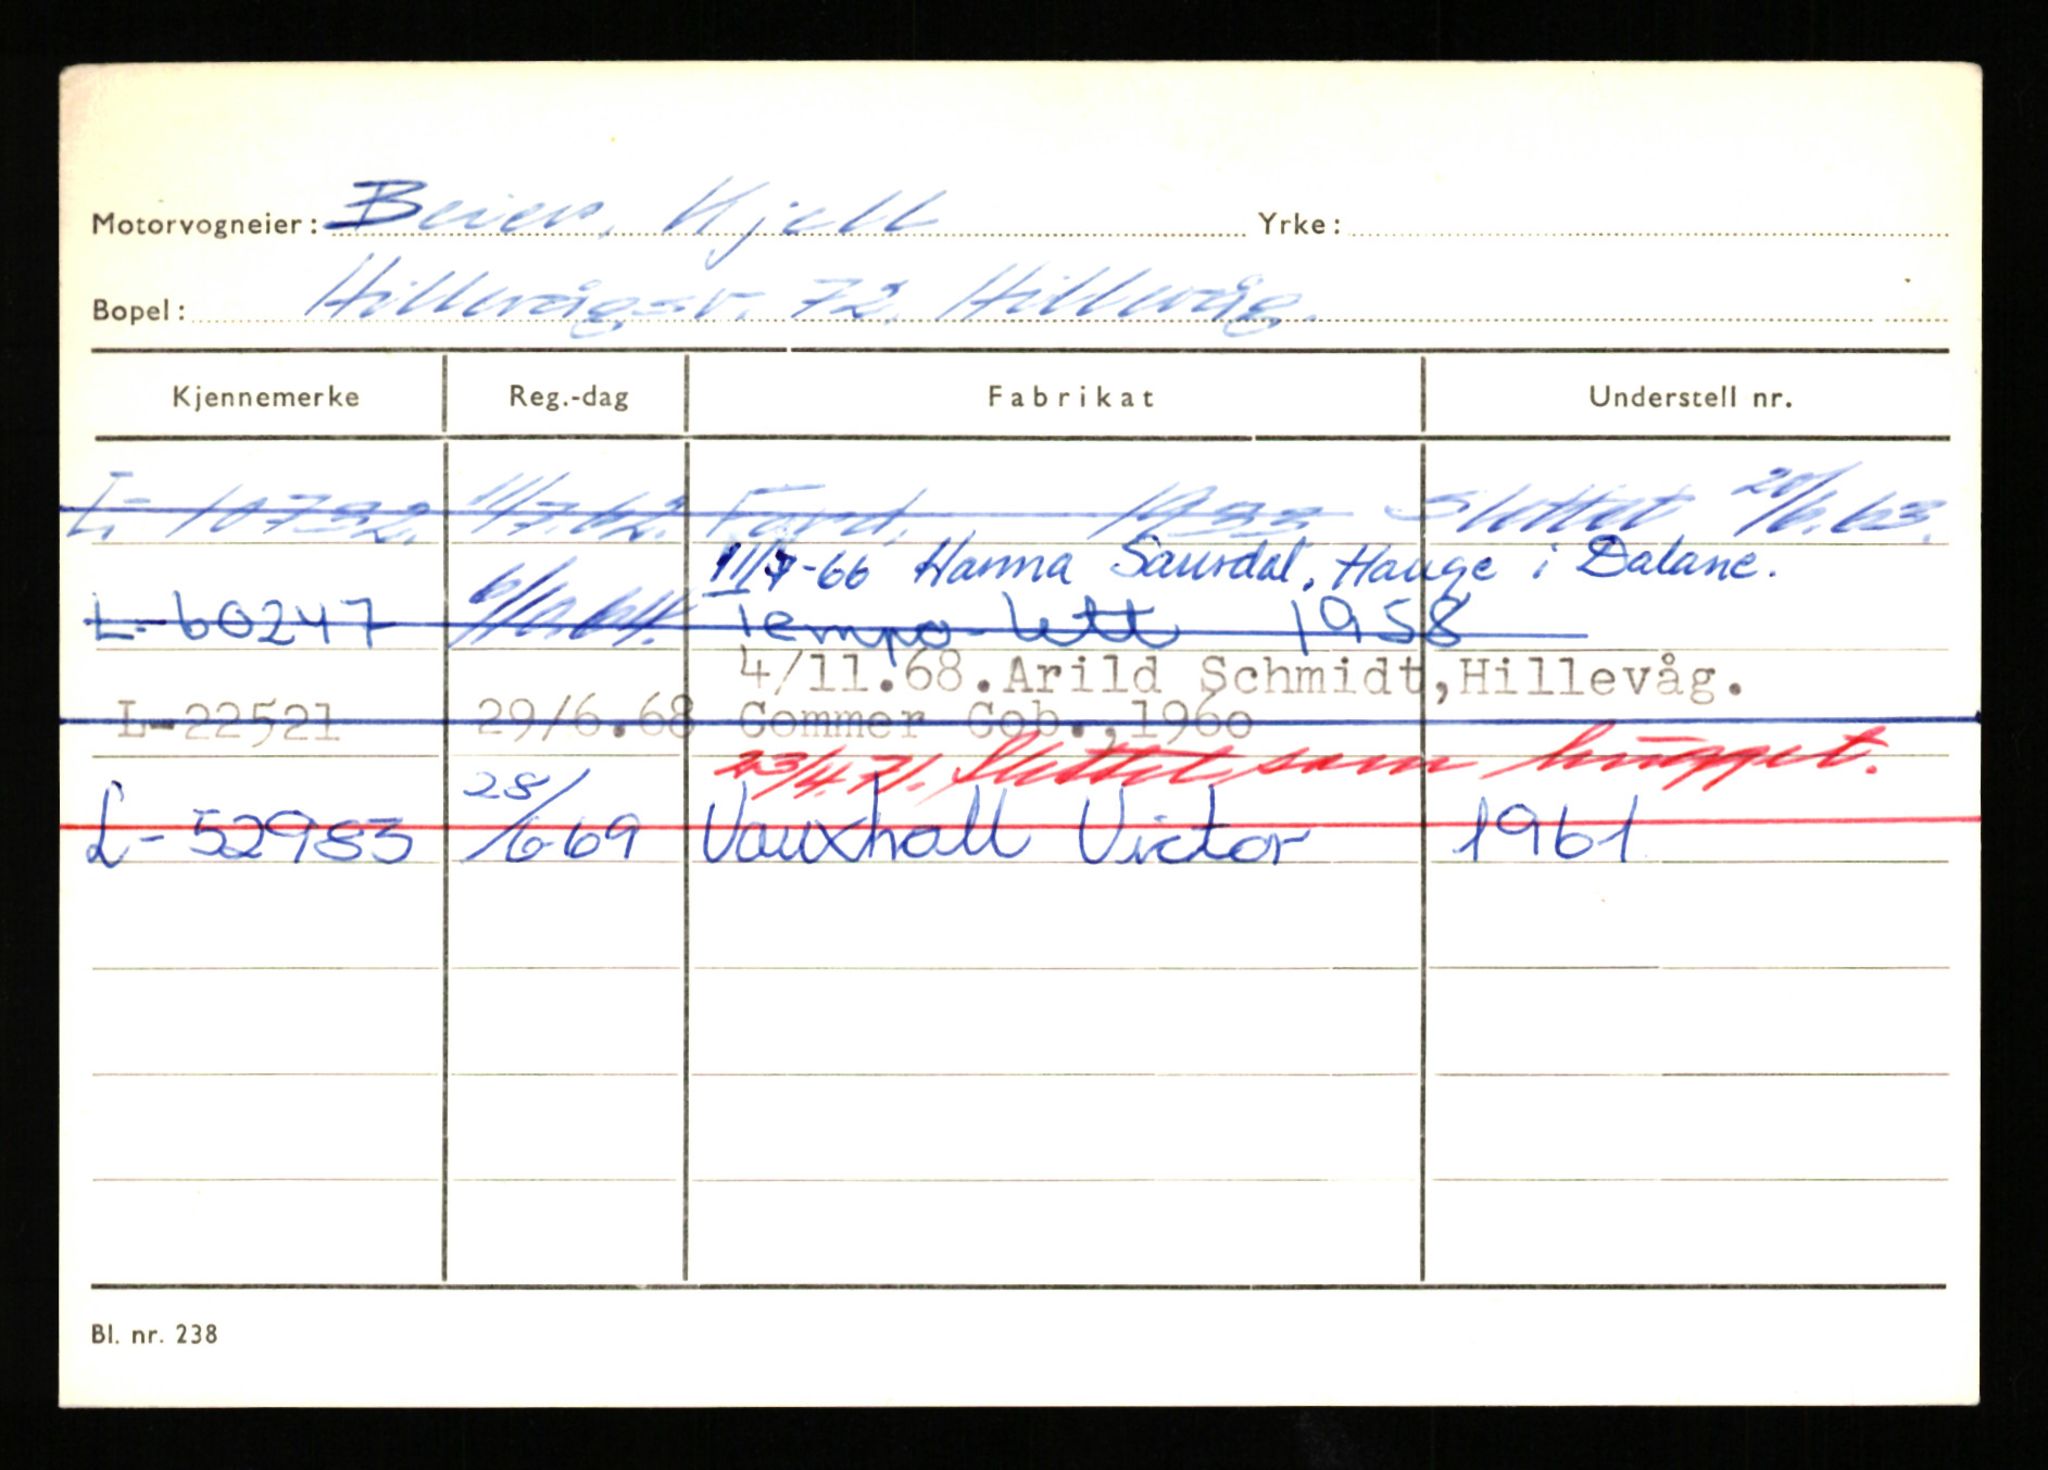 Motorvogneier: Beier, Kjell Yrke:
Bopel: Hillevågsv. 72, Hillevåg.
Kjennemerke Reg.-dag Fabrikat Understell nr.
L-10732. 11/7.62. Ford. 1933 Slettet 20/6.63.
11/7-66 Hanna Saurdal, Hauge i Dalane.
L-60247 6/10.64. Tempo-lett 1958
4/11.68. Arild Schmidt, Hillevåg.
L-22521 29/6.68 Commer Cob., 1960
23/4.71. Slettet som hugget.
L-52983 28/6-69 Vauxhall Victor 1961
Bl. nr. 238